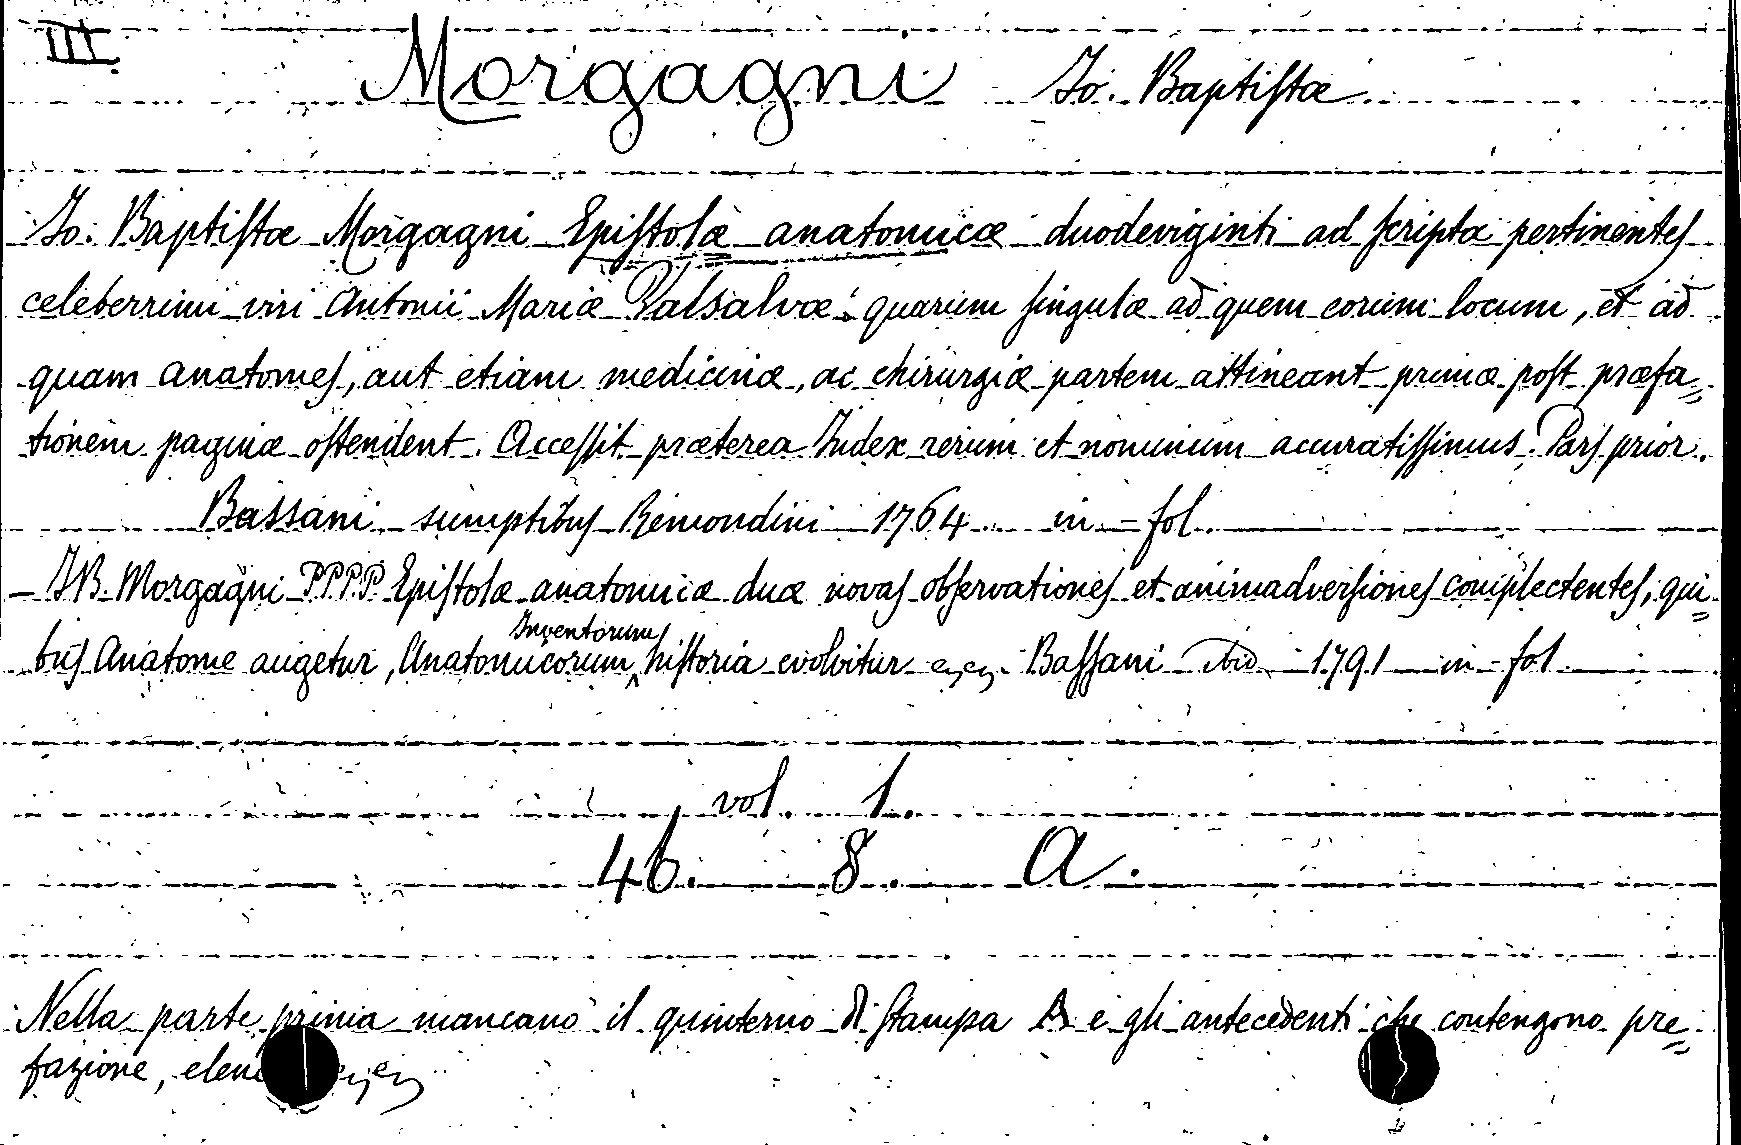 III.
Morgagni Jo. Baptiſtæ
Jo. Baptiſtæ Morgagni Epiſtolæ anatomicæ duodeviginti ad ſcripta pertinentes
celeberrimi viri Antonii Mariæ Valsalvæ: quarum ſingulæ ad quem eorum locum, et ad
quam anatomes, aut etiam medicinæ, ac chirurgiæ partem attineant primæ poſt præfa=
tionem paginæ oſtendent. Acceſſit præterea Index rerum et nominum accuratiſſimus. Pars prior.
Bassani sumptibus Remondini 1764 in-fol.
– J.B. Morgagni P.P.P.P. Epiſtolæ anatomicæ duæ novas obſervationes et animadverſiones complectentes, qui=
Inventorum
bus Anatome augetur, Anatomicorum historia evolvitur Baſſani ibid. 1791 in-fol.
vol. 1.
46. 8. A.
Nella parte prima mancano il quinterno di ſtampa A e gli antecedenti che contengono pre=
fazione,